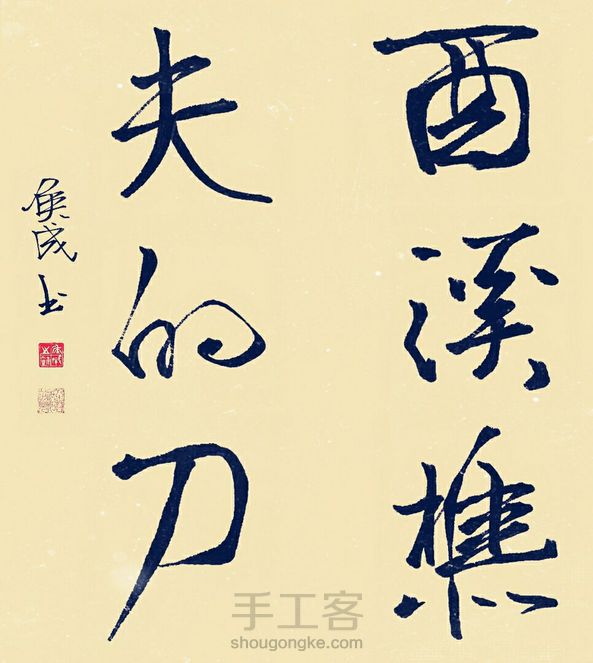 酉溪樵
夫的刀
侯成书
手工客
shougongke.com